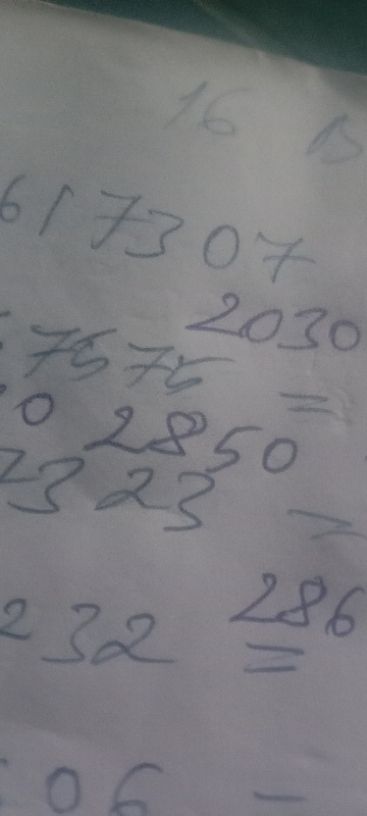 16 B
617307
2030
7575 =
0 2850
2323 =
232 = 286
06 -